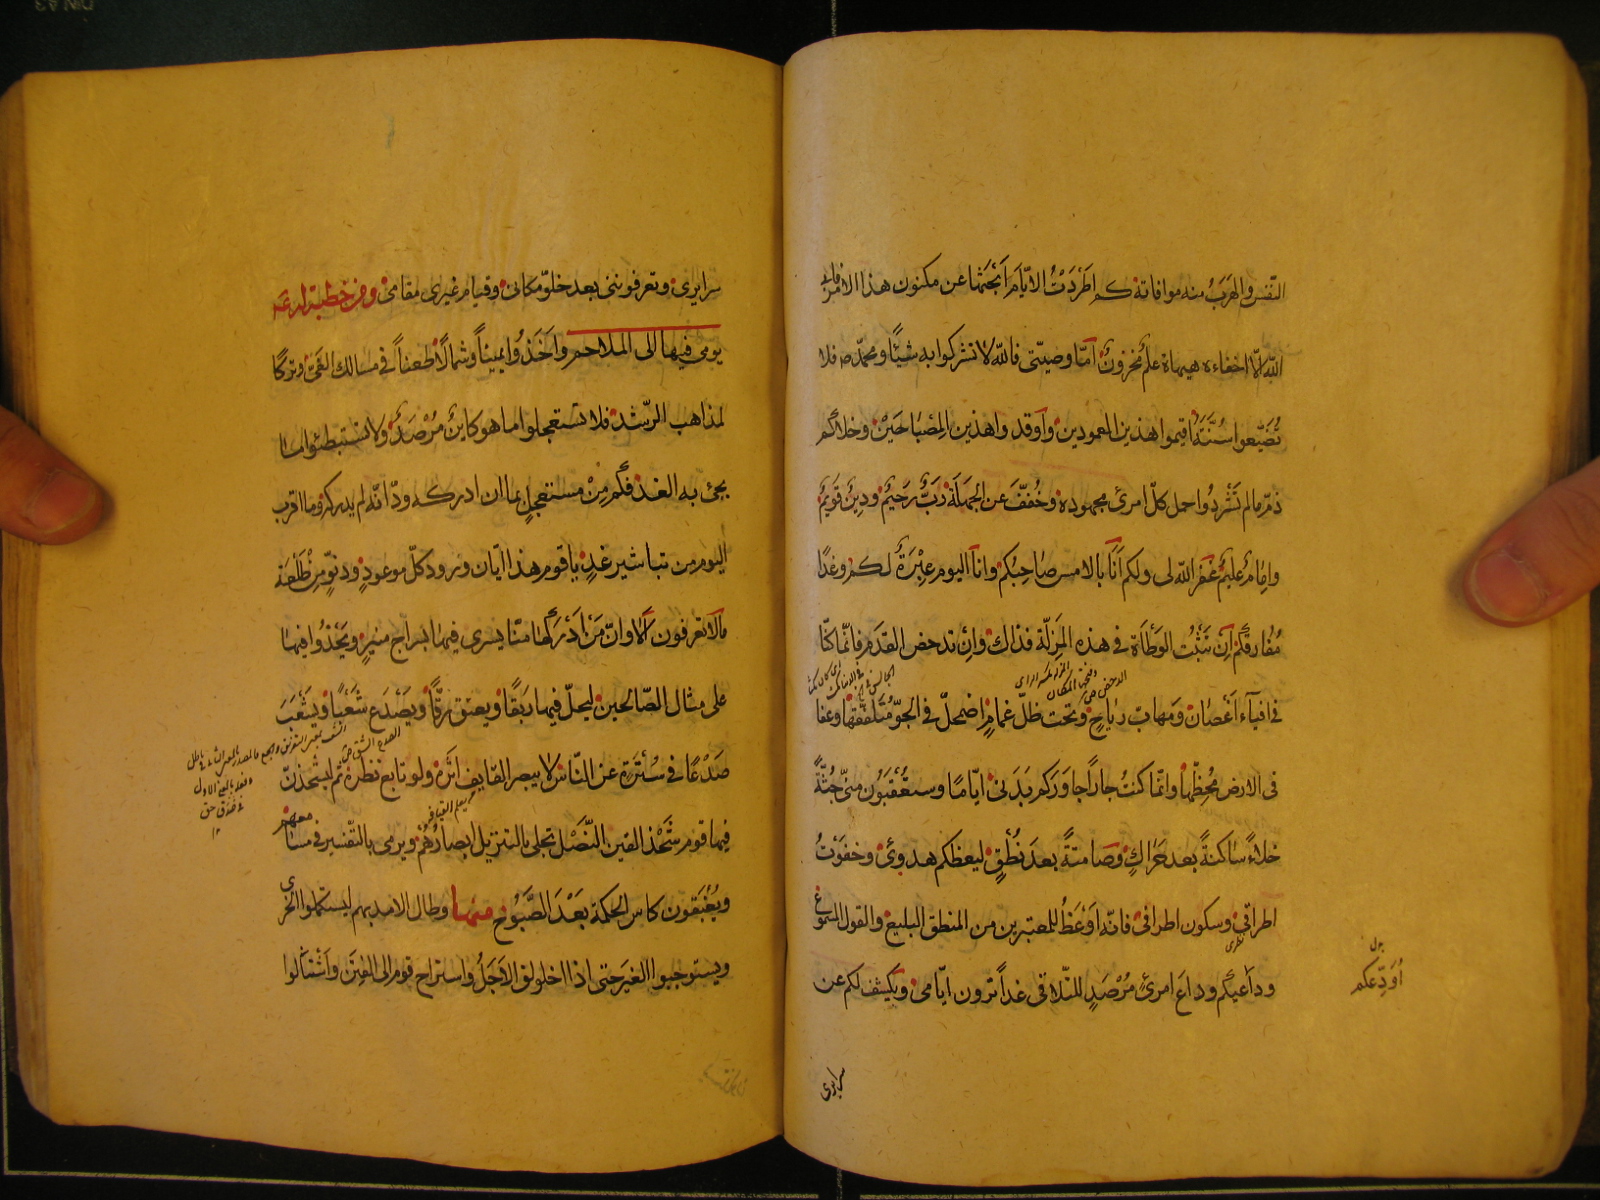 النّفس والهَرَبُ منه موافاته كم اطْرَدْتُ الايّامَ اَبْحَثُها عن مكنون هذا الامر فابى
اللّه الّا اخفاءه هيهاة علم مخزونٌ امّا وصيّتى فاللّه لا تشركوا به شيئًا ومحمّد ص فلا
تُضَيّعوا سُنَّتَهُ اقيموا هذين العمودين واَوقدوا هذين المِصْبَاحَيْن وخلاكم
ذمّ مالم تَشْرُدُوا حمل كلّ امرئ مجهوده وخُفِّفَ عن الجهَلَة رَبٌّ رَحيْم ودِيْن قَوِيْمٌ
واِمَامٌ عليمٌ غَفَرَ اللّه لى ولكم اَنَا بالامس صَاحِبُكم وانا اليوم عِبْرَةٌ لكم وغَدًا
مُفَارقُكم اِنْ تَثْبُت الوَطْأَة فى هذه المَزِلّة فذاك وَاِنْ تدحض القدَم فانّما كنّا
فى افياءِ اَغْصَان وَمَهابّ رِيَاحٍ وتحت ظلّ غمامٍ اضمحلّ فى الجوّ مُتَلَفّقُها وعفا
فى الارض مُخِطُّها وانّما كنتُ جارًا جاوَرَكم بَدَنى ايّامًا وستُعْقَبُونَ منّى جُثّةً
خلاءً سَاكنةً بعد حَرَاكٍ وصَامتةً بعدَ نُطْقٍ ليعظكم هدوئى وخفوْتُ
اطراقى وسكون اطرافى فانّه اَوْعَظُ للمعتبرين من المنطق البليغ والقول المسموع
وداعيكم وداعَ امرئ مُرْصَدٍ للتّلاقى غداً ترون ايّامى ويكشف لكم عن
اُوَدِّعكم
سرايرى
سرايرى وتعرفوننى بعد خلوّ مكانى وقيام غيرى مقامى ومن خطبة له ع
يومى فيها الى الملاحم واَخَذُوا يميناً وشمالًا طعناً فى مسالك الغَىّ وتركًا
لمذاهب الرّشد فلا تستعجلوا ما هو كاينٌ مُرْصَدٌ ولا تستبطئوا ما
يجئ به الغد فكم مِنْ مستعجلٍ بما ان ادركه ودّ انّه لم يدركه وما اقرب
اليوم من تباشير غدٍ يا قوم هذا ابّان ورود كلّ موعودٍ ودنوٍّ مِنْ طَلْعَة
مالا تعرفون اَلَا وانّ مَنْ اَدْرَكَها منّا يسرى فيها بسراج منيرٍ ويَحْذُوا فيها
على مثال الصّالحين ليحلّ فيها رِبَقًا ويعتق رِقًّا ويَصْدَع شَعْبًا ويَشْعَبَ
صَدْعًا فى سُتْرَةٍ عن النّاس لا يبصر القايف اَثَرَه ولو تابع نظرَهُ ثم ليشحذنّ
فيها قوم شَحْذ القين النّصْل تجلى بالتنزيل ابصارُهُم ويرمى بالتّفسير فى مسامعهم
ويُغْبَقون كاس الحكمة بَعْدَ الصَّبُوْح منها وطال الامد بهم ليستكملوا الخزى
ويستوجبوا الغِيَر حتى اذا اخلولق الاَجَلُ واستراح قوم الى الفِتَن واَشْتالوا